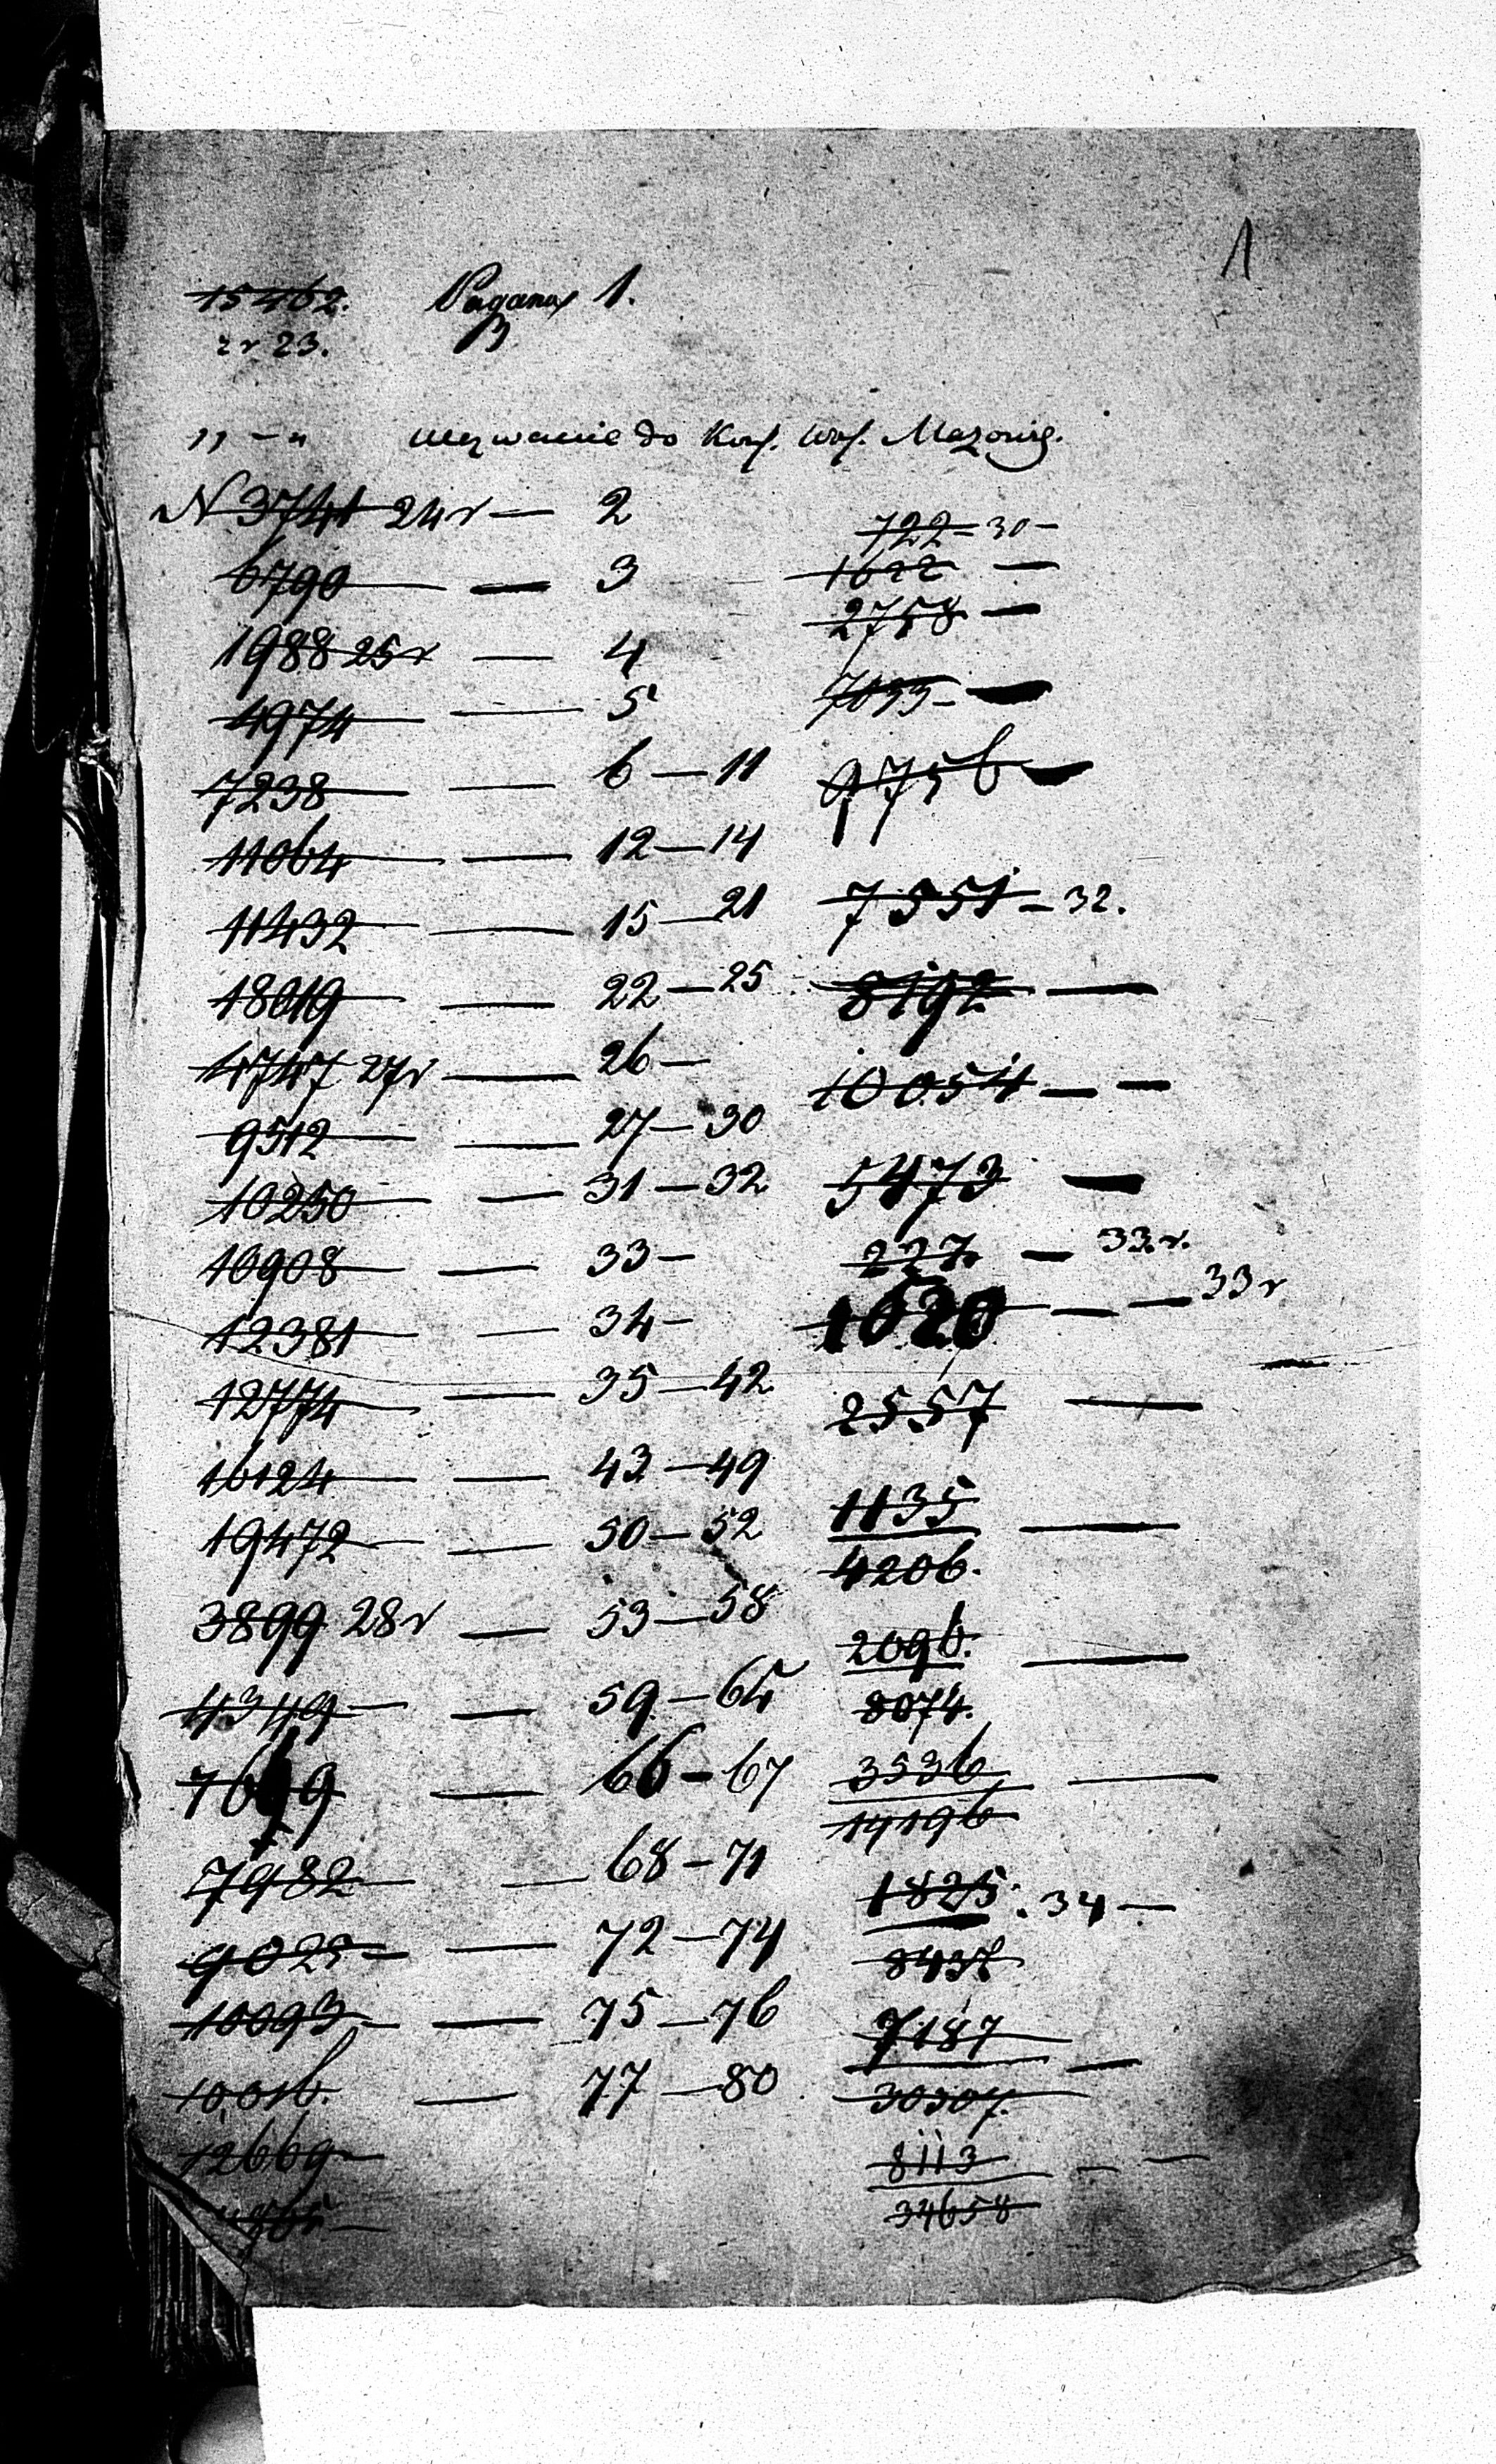 1
15462. Pagina 1.
r 23.
" — " Wezwanie do Kom. Woj. Mazowie.
N 3741 24 r — 2
6790 — 3
1988 25 r — 4
4974 — 5
7238 — 6 — 11
11064 — 12 — 14
11432 — 15 — 21
18019 — 22 — 25
4747 27 r — 26 —
9512 — 27 — 30
10250 — 31 — 32
10908 — 33 —
12381 — 34 —
12774 — 35 — 42
16124 — 43 — 49
19472 — 50 — 52
3899 28 r — 53 — 58
4349 — 59 — 65
7699 — 66 — 67
7982 — 68 — 71
9025 — 72 — 74
10093 — 75 — 76
10016. — 77 — 80
12669 —
722 — 30 —
1622 —
2758 —
7033 —
9756 —
7551 — 32.
8192 —
10054 — —
5473 —
227. — 33 r.
1020 — — 33 r
2557 —
1135 —
4206.
2096. —
8074.
3536 —
19196
1825. 34 —
8437
7187 —
30307.
8113 — —
34658